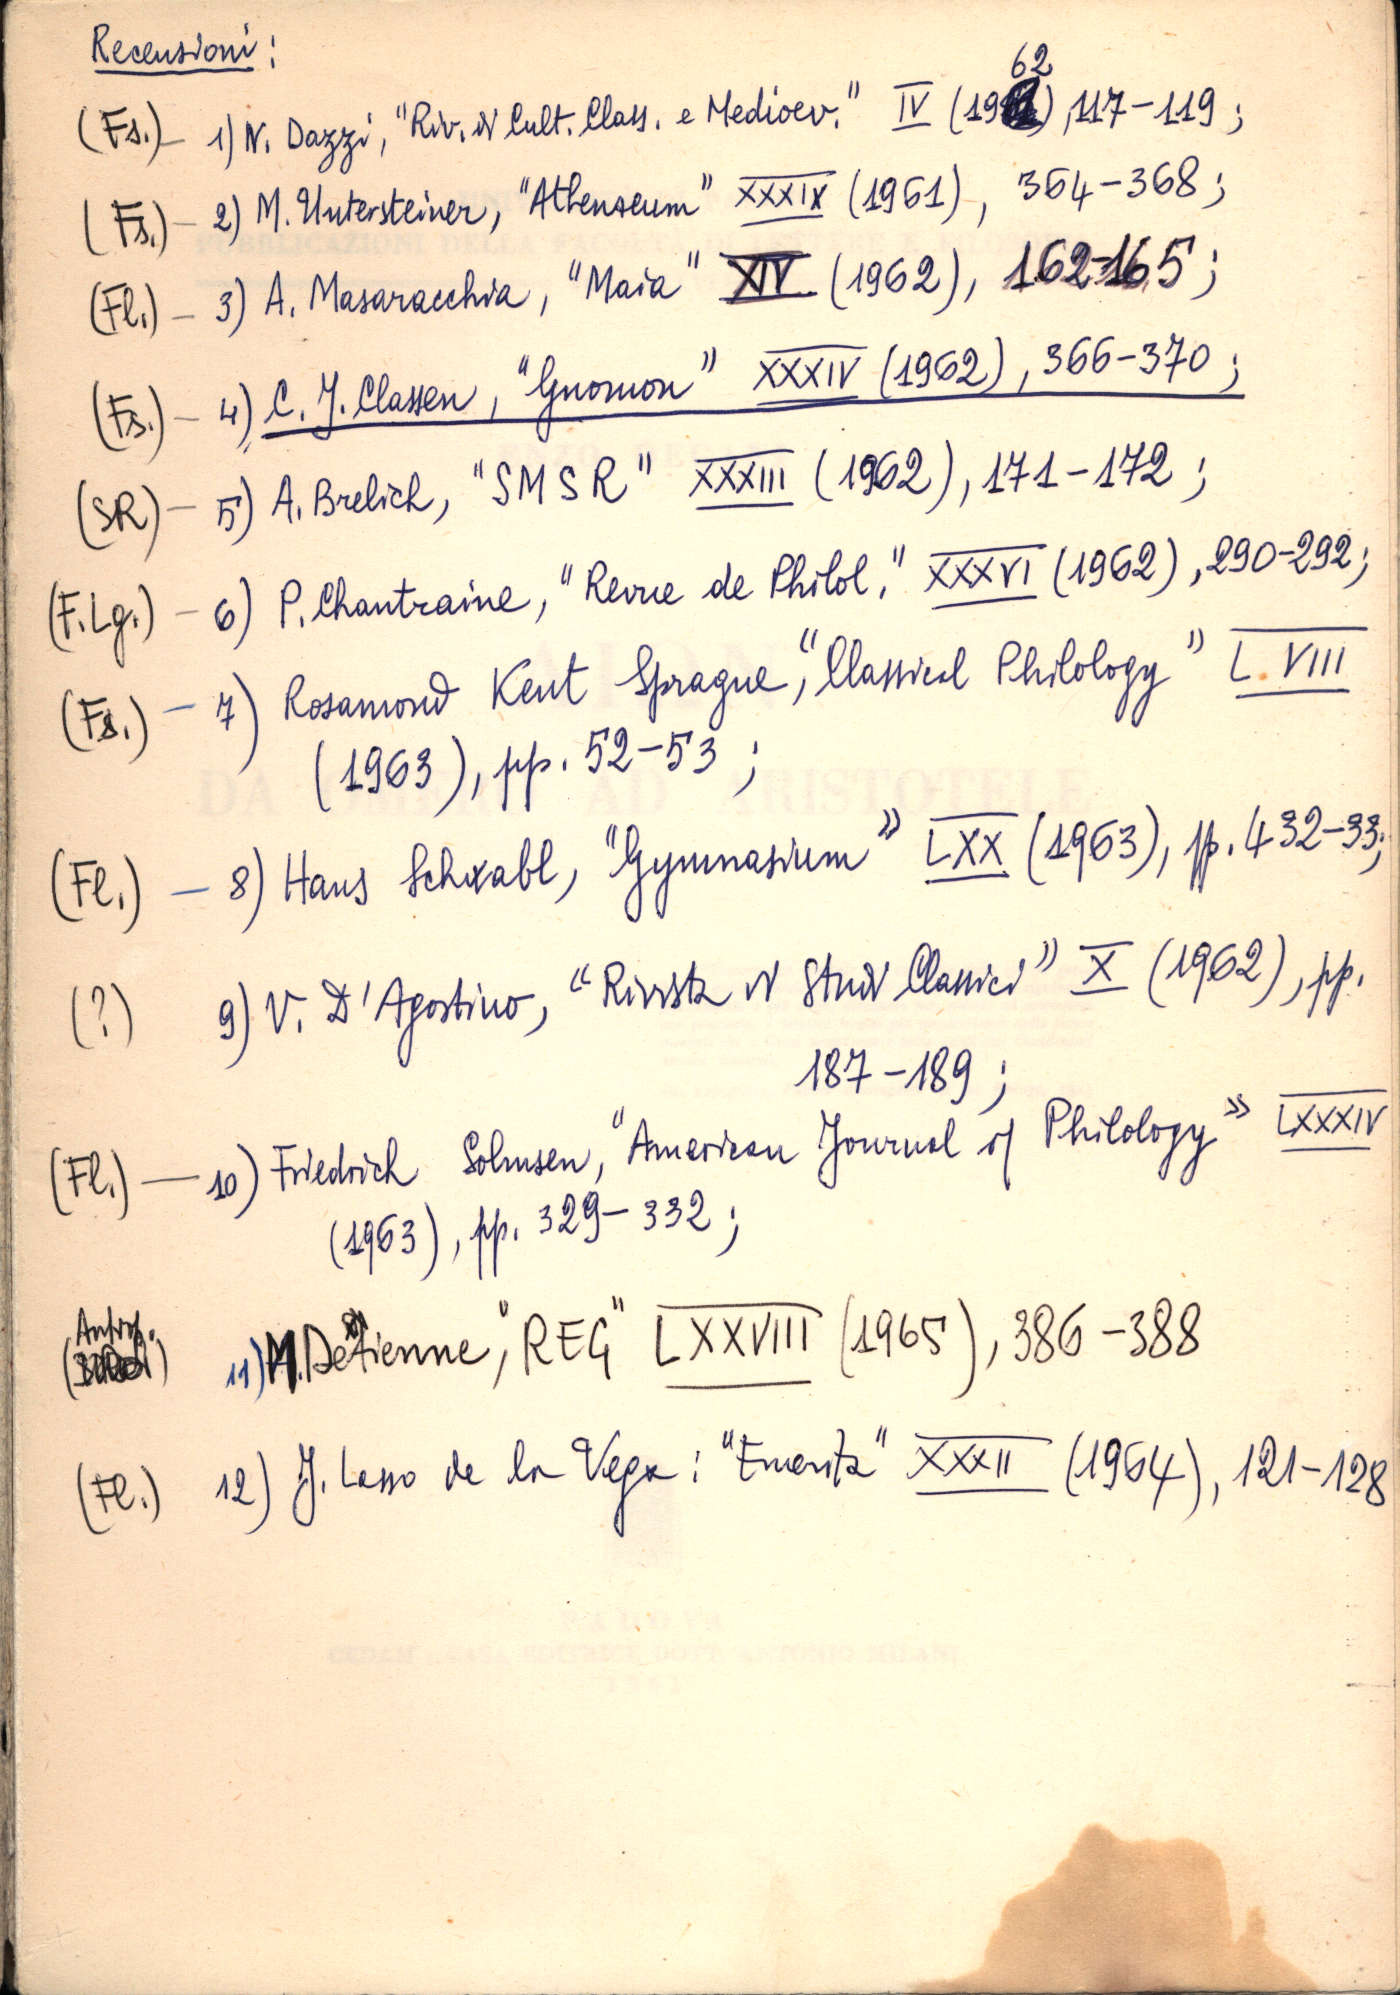 Recensioni:
(Fs.) – 1) N. Dazzi, "Riv. di Cult. Class. e Medioev." IV (1962), 117–119;
(Fs.) – 2) M. Untersteiner, "Athenaeum" XXXIX (1961), 364–368;
(Fl.) – 3) A. Masaracchia, "Maia" XIV (1962), 162–165;
(Fs.) – 4) C. J. Classen, "Gnomon" XXXIV (1962), 366–370;
(SR) – 5) A. Brelich, "SMSR" XXXIII (1962), 171–172;
(F.Lg.) – 6) P. Chantraine, "Revue de Philol." XXXVI (1962), 290–292;
(Fs.) – 7) Rosamond Kent Sprague, "Classical Philology" L.VIII
(1963), pp. 52–53;
(Fl.) – 8) Hans Schwabl, "Gymnasium" LXX (1963), pp. 432–33;
(?) 9) V. D'Agostino, "Rivista di Studi Classici" X (1962), pp.
187–189;
(Fl.) — 10) Friedrich Solmsen, "American Journal of Philology" LXXXIV
(1963), pp. 329–332;
11) M. Detienne, "REG" LXXVIII (1965), 386–388
(Fl.) 12) J. Lasso de la Vega: "Emerita" XXXII (1964), 121–128
DA OMERO AD ARISTOTELE
PADOVA
CEDAM - CASA EDITRICE DOTT. ANTONIO MILANI